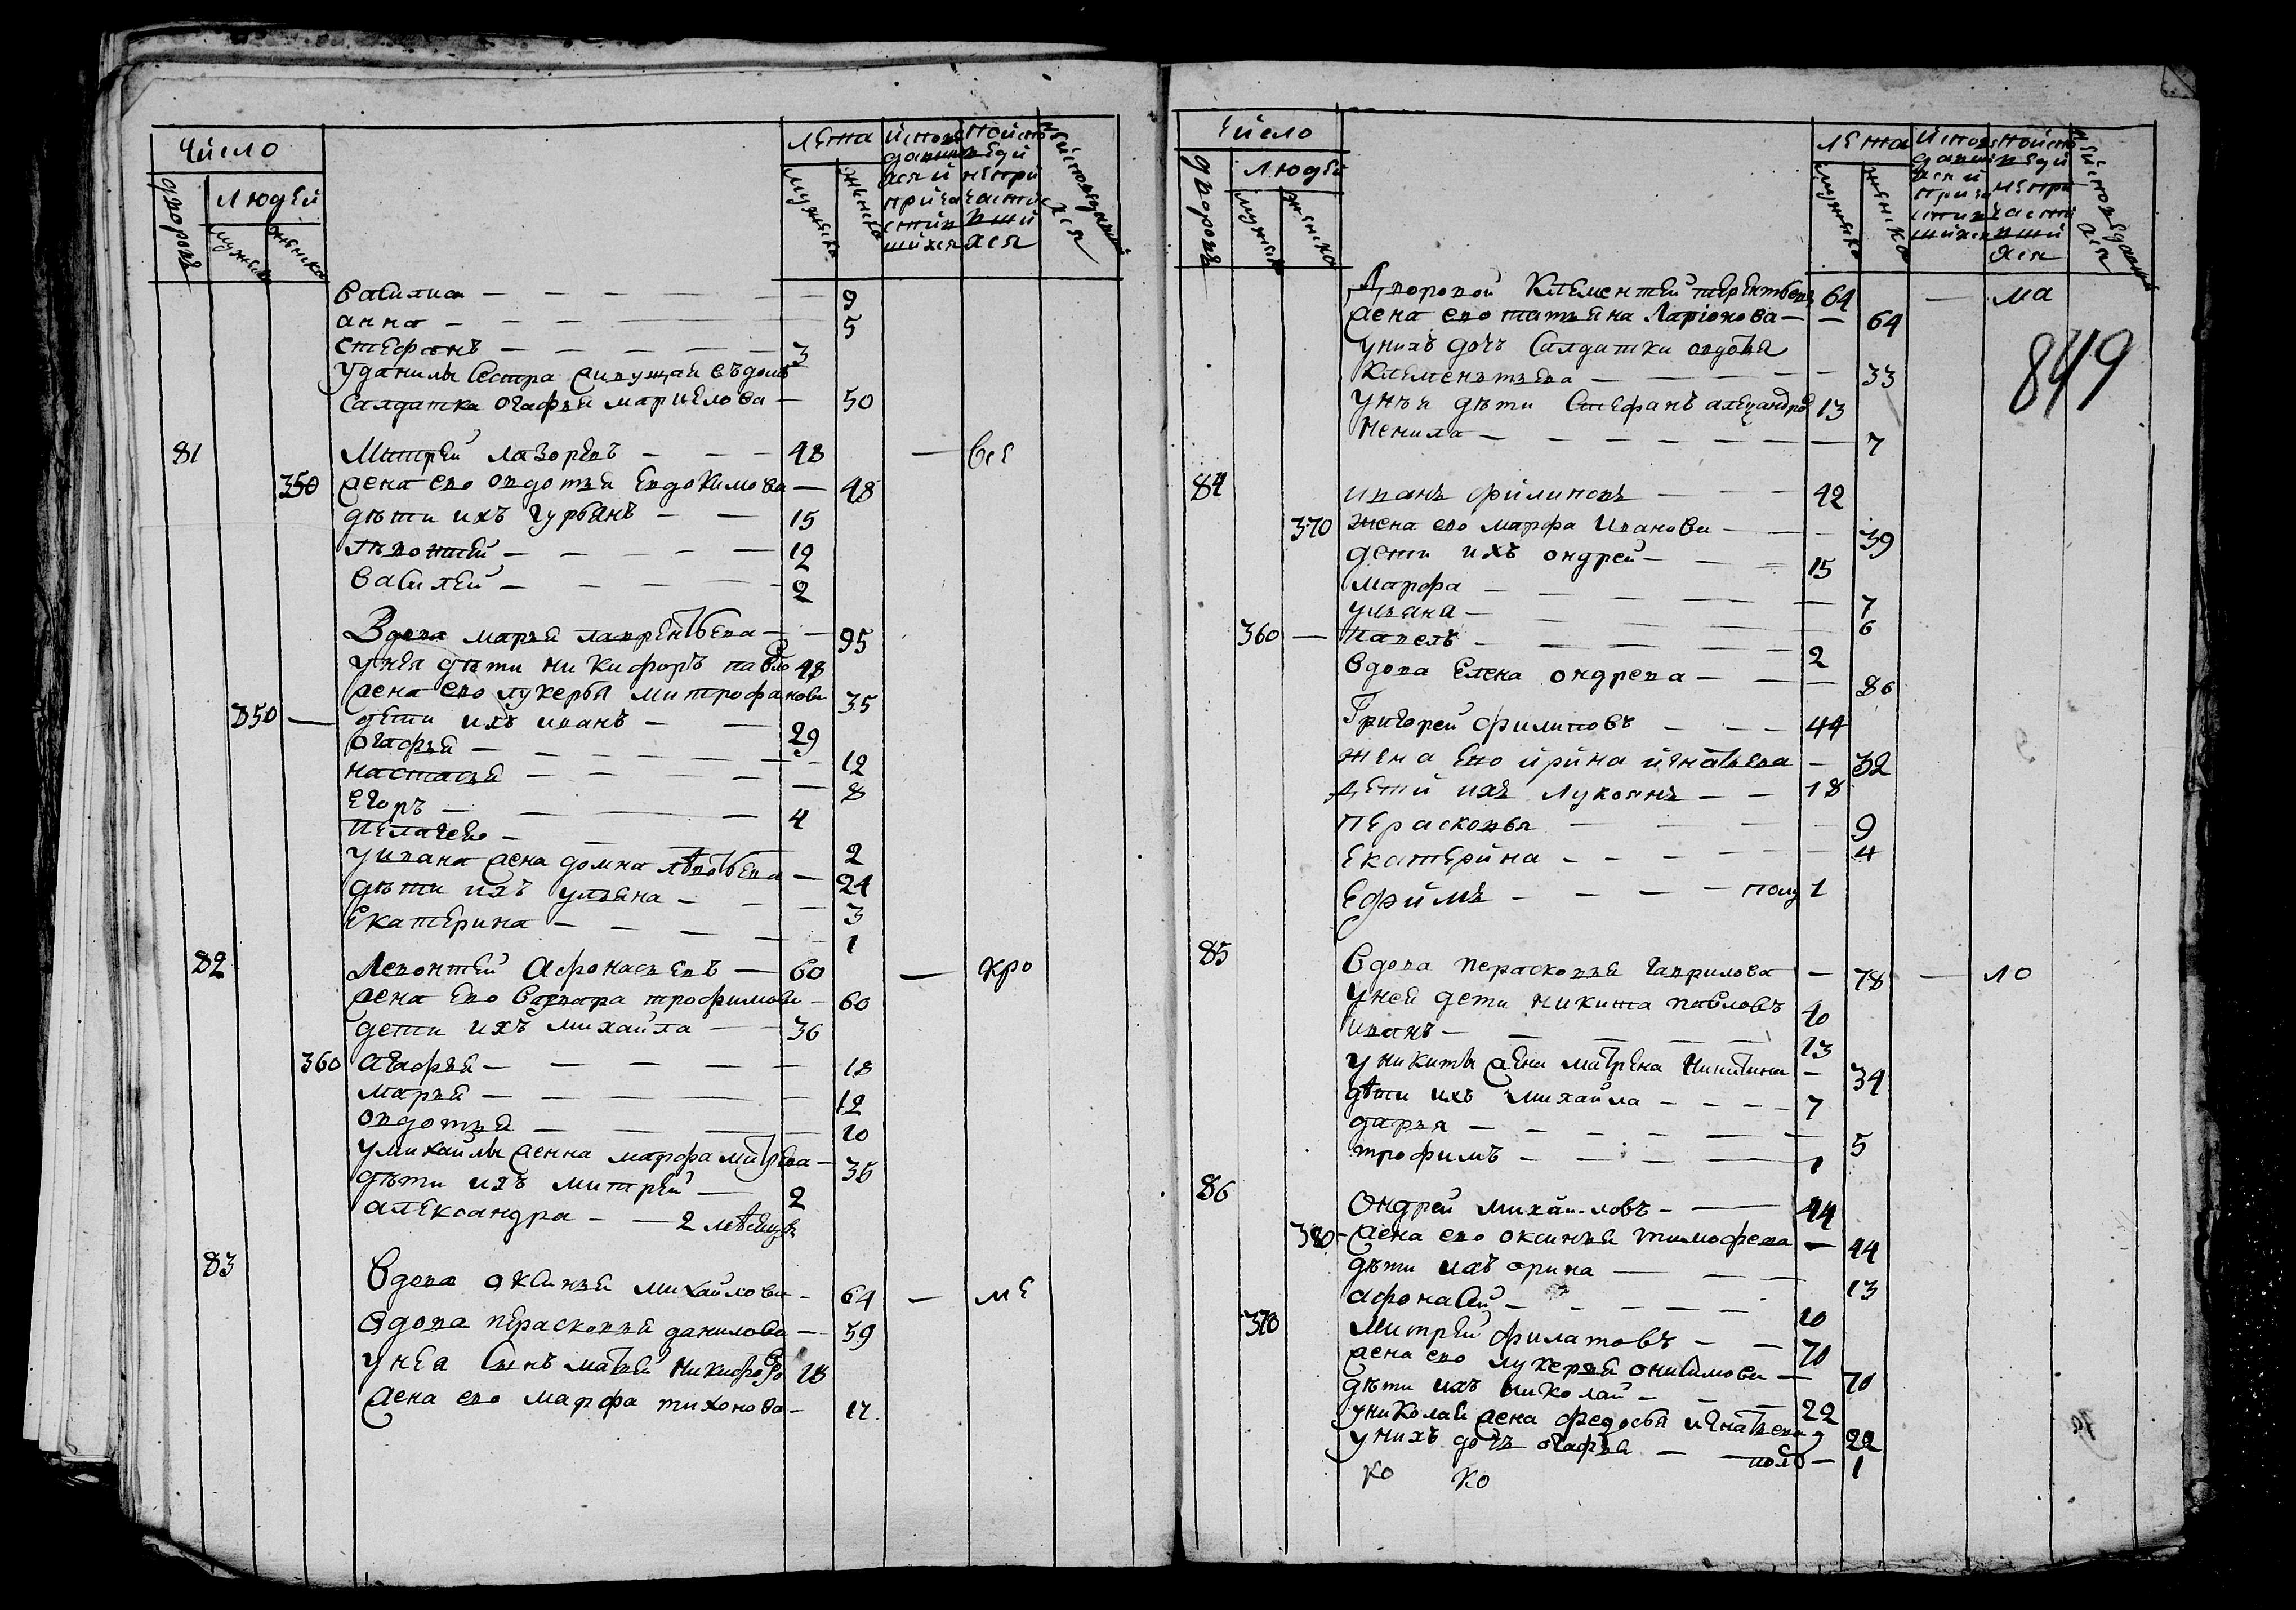 Число
лета
дворовъ
людей
мужеска
женска
мужеска
женска
Василиса — 9
анна — 5
стефанъ — 3
у данилы сестра живущая въ домѣ
салдатка огафья — 50
81 Митрей лазоревъ — 48 — все
350 жена ево овдотья Евдокимова — 48
дѣти ихъ гурьянъ — 15
лѣвонтей — 12
Василей — 2
Вдова марья лаврентьева — 95
у нея дѣти никифоръ павло 48
жена ево лукерья митрофанова 35
350 — дети ихъ иванъ — 29
огафья — 12
настасья — 8
Егоръ — 4
пелагея — 2
у ивана жена домна лѣвотьева — 24
дѣти ихъ ульяна — 3
Екатерина — 1
82 Левонтей Афонасьевъ — 60 — хро
жена Ево Варвара трофимова — 60
дети ихъ михайла — 36
360 агафья — 18
марья — 12
овдотья — 10
у михайлы женна марфа митрева — 36
дѣти ихъ митрей — 2
александра — 2 мѣсецовъ
83
Вдова оксинья михайлова — 64 — ме
Вдова перасковья данилова — 59
у нея сынъ матвей никифоро 18
жена ево марфа тихонова — 17
Число
лета
дворовъ
людей
мужеска
женска
мужеска
женска
Дворовой Клементей терентьевъ 64 — ма
жена ево татьяна Ларіонова — 64
849
у нихъ дочь салдатка овдотья
Клементьева — 33
у нея дѣти стефанъ 13
Ненила — 7
84 иванъ филиповъ — 42
370 жена ево марфа Иванова — 39
дети ихъ ондрей — 15
марфа — 7
ульяна — 6
360 — павелъ — 2
Вдова Елена ондрева — 86
Григорей филиповъ — 44
жена Ево ирина игнатьева — 32
дети ихъ лукоянъ — 18
перасковья — 9
Екатерина — 4
Ефимъ — полу 1
85
Вдова перасковья гаврилова — 78 — ло
у ней дети никита павловъ 40
иванъ — 13
у никиты жена матрена никитина — 34
дѣти ихъ михайла — 7
дарья — 5
трофимъ — 1
86
Ондрей михайловъ — 44
380 — жена ево оксинья тимофева — 44
дѣти ихъ орина — 13
афонасей — 10
370 Митрей филатовъ — 70
жена ево лукерья онисимова — 70
дѣти ихъ николай — 22
у николая жена федосья игнатьева 22
у нихъ дочь огафья — пол — 1
ко ко